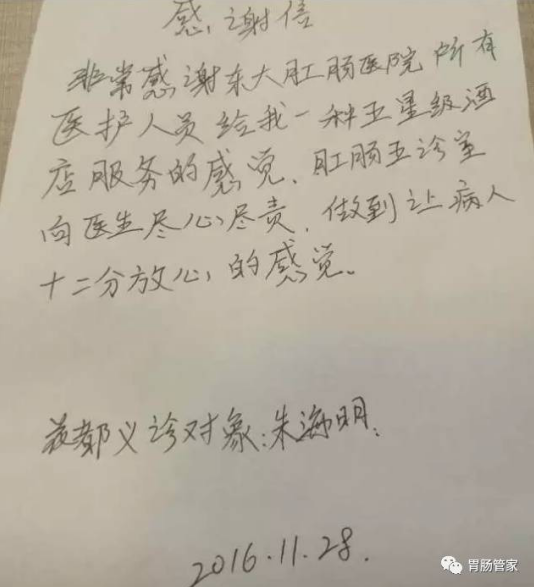 感谢信
非常感谢东大肛肠医院所有
医护人员给我一种五星级酒
店服务的感觉、肛肠五诊室
向医生尽心尽责、做到让病人
十二分放心的感觉。
都义诊对象：朱海明.
2016.11.28.
胃肠管家